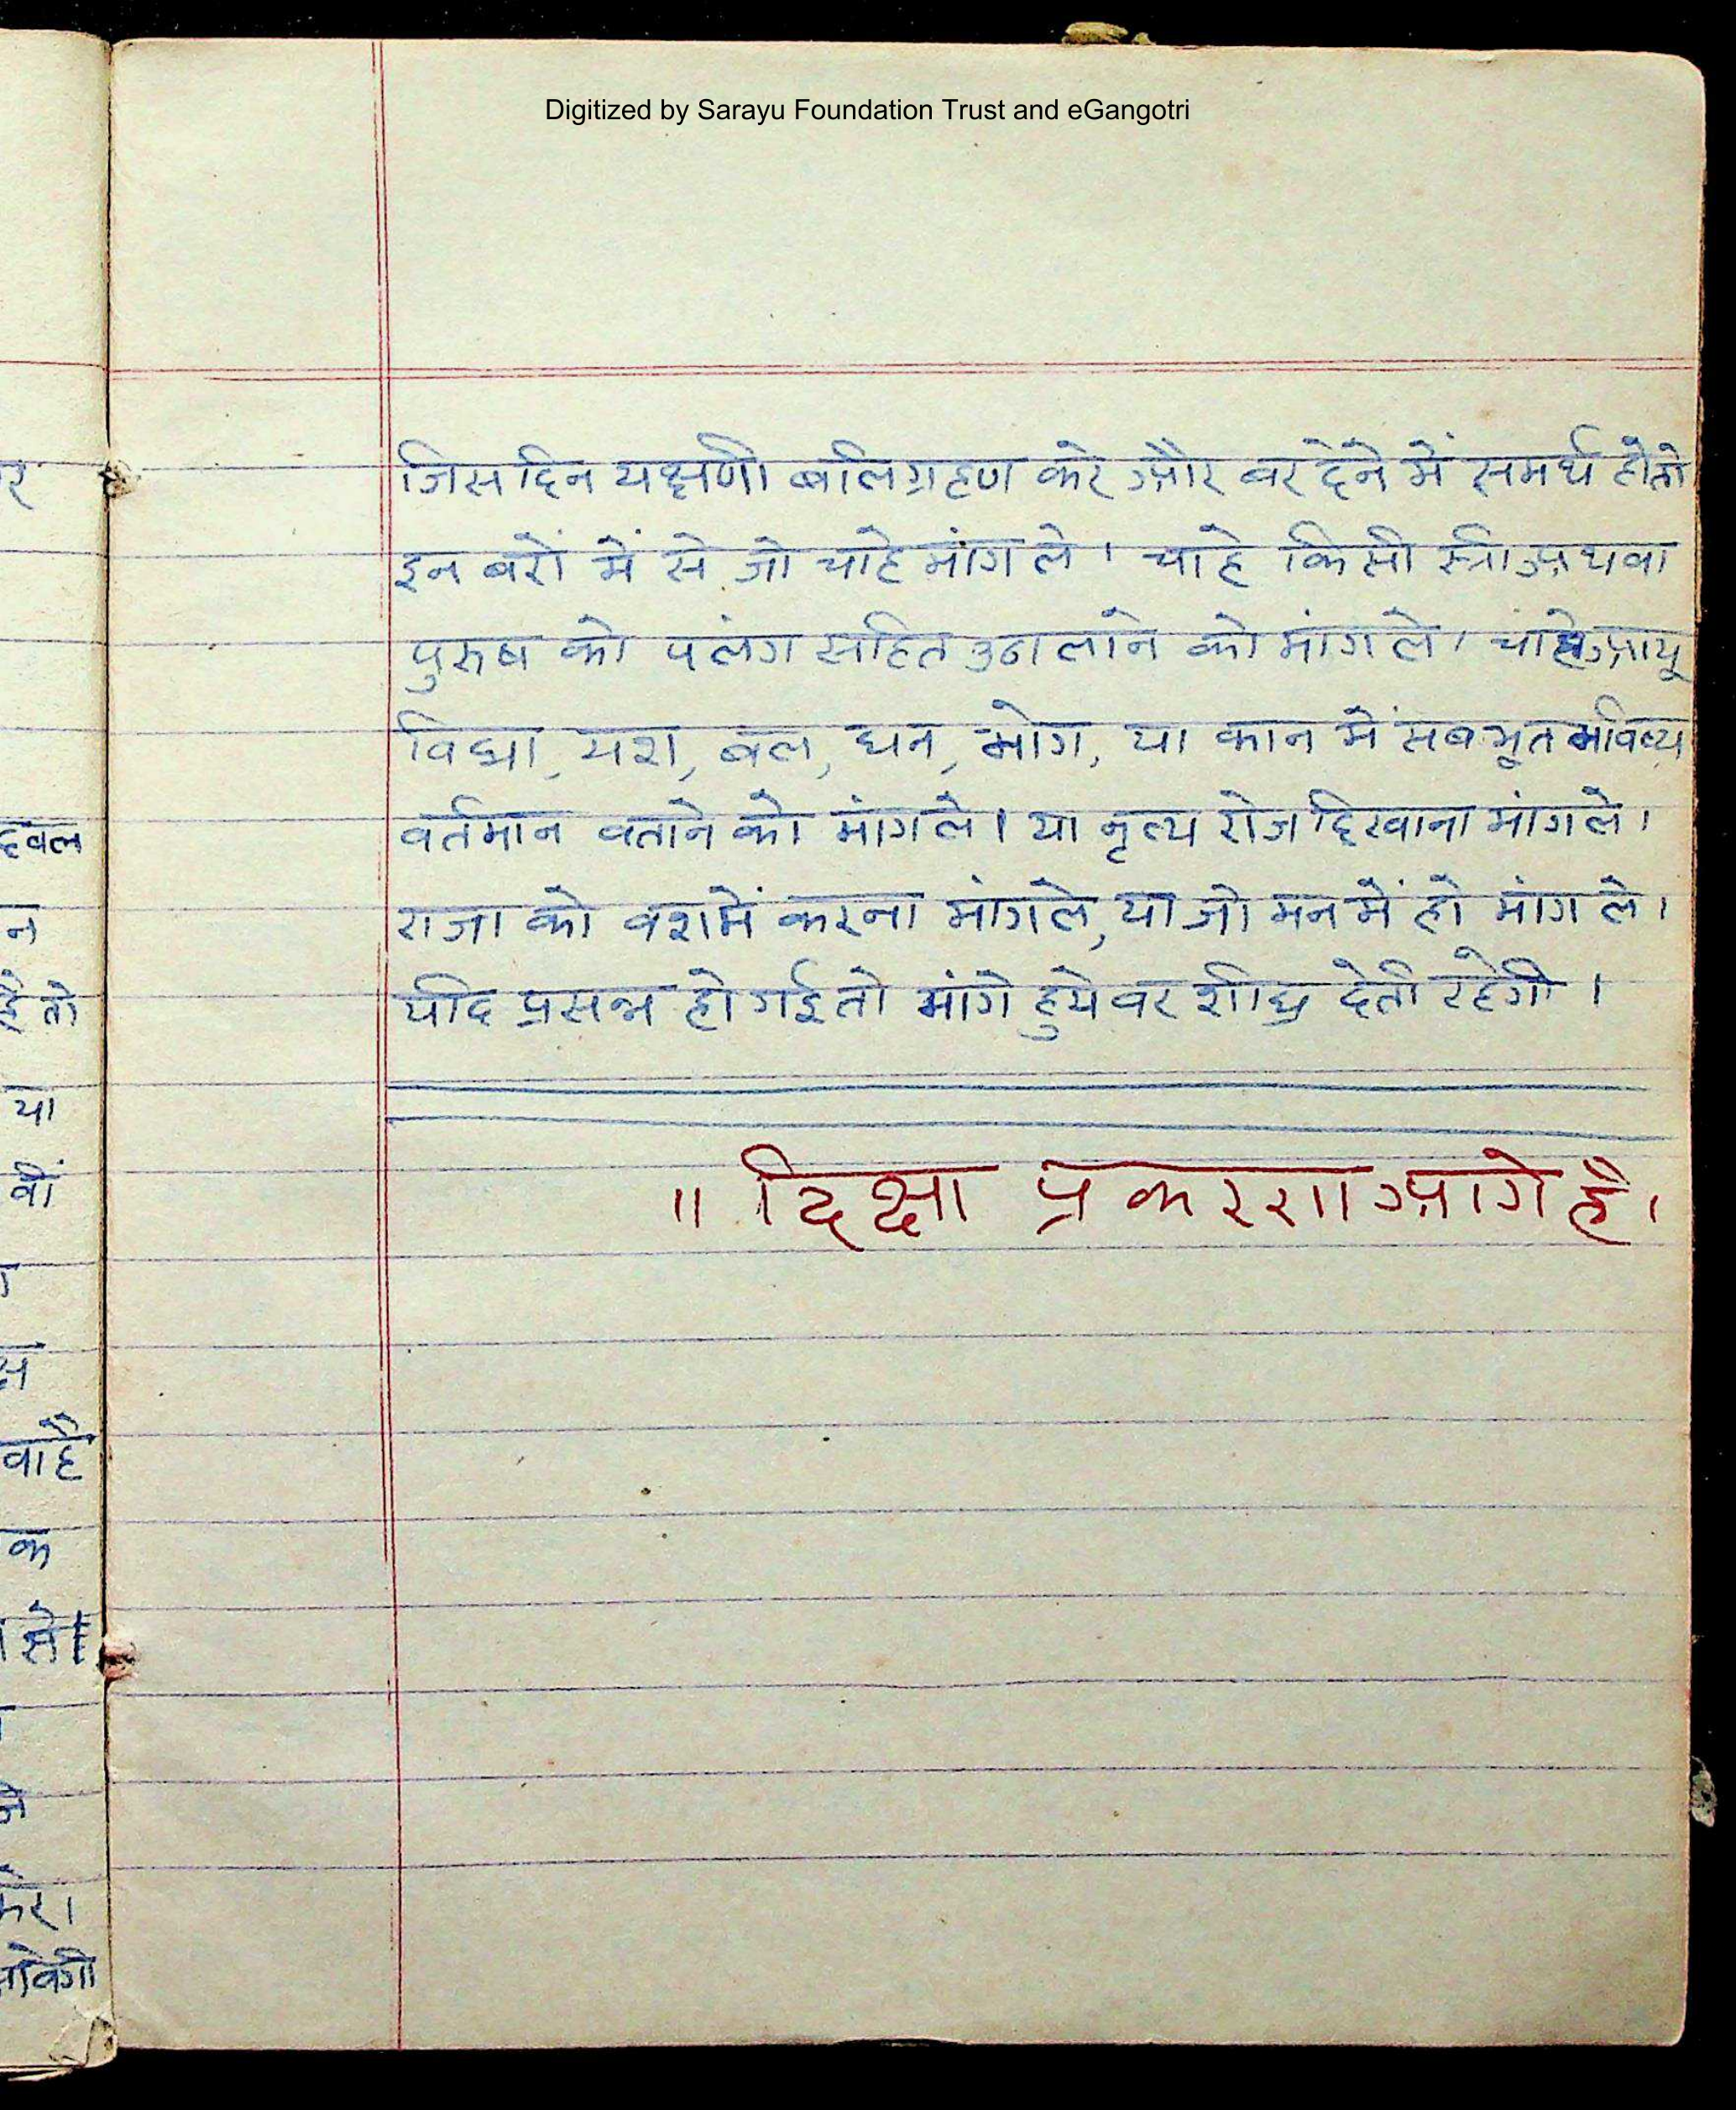 Digitized by Sarayu Foundation Trust and eGangotri
जिसदिन यक्षणी बलिग्रहण करे और बर देने में समर्थ होतो
इन बरों में से जो चाहे मांग ले। चाहे किसी स्त्री अथवा
पुरुष को पलंग सहित उठा लाने को मांग ले। चाहे आयू
विद्या, यश, बल, धन, भोग, या कान में सब भूत भविष्य
वर्तमान बताने को मांगले। या नृत्य रोज दिखाना मांगले।
राजा को वशमें करना मांगले, या जो मन में हो मांग ले।
यदि प्रसन्न हो गई तो मांगे हुये वर शीघ्र देती रहेगी।
॥ दिक्षा प्रकरण आगे है।